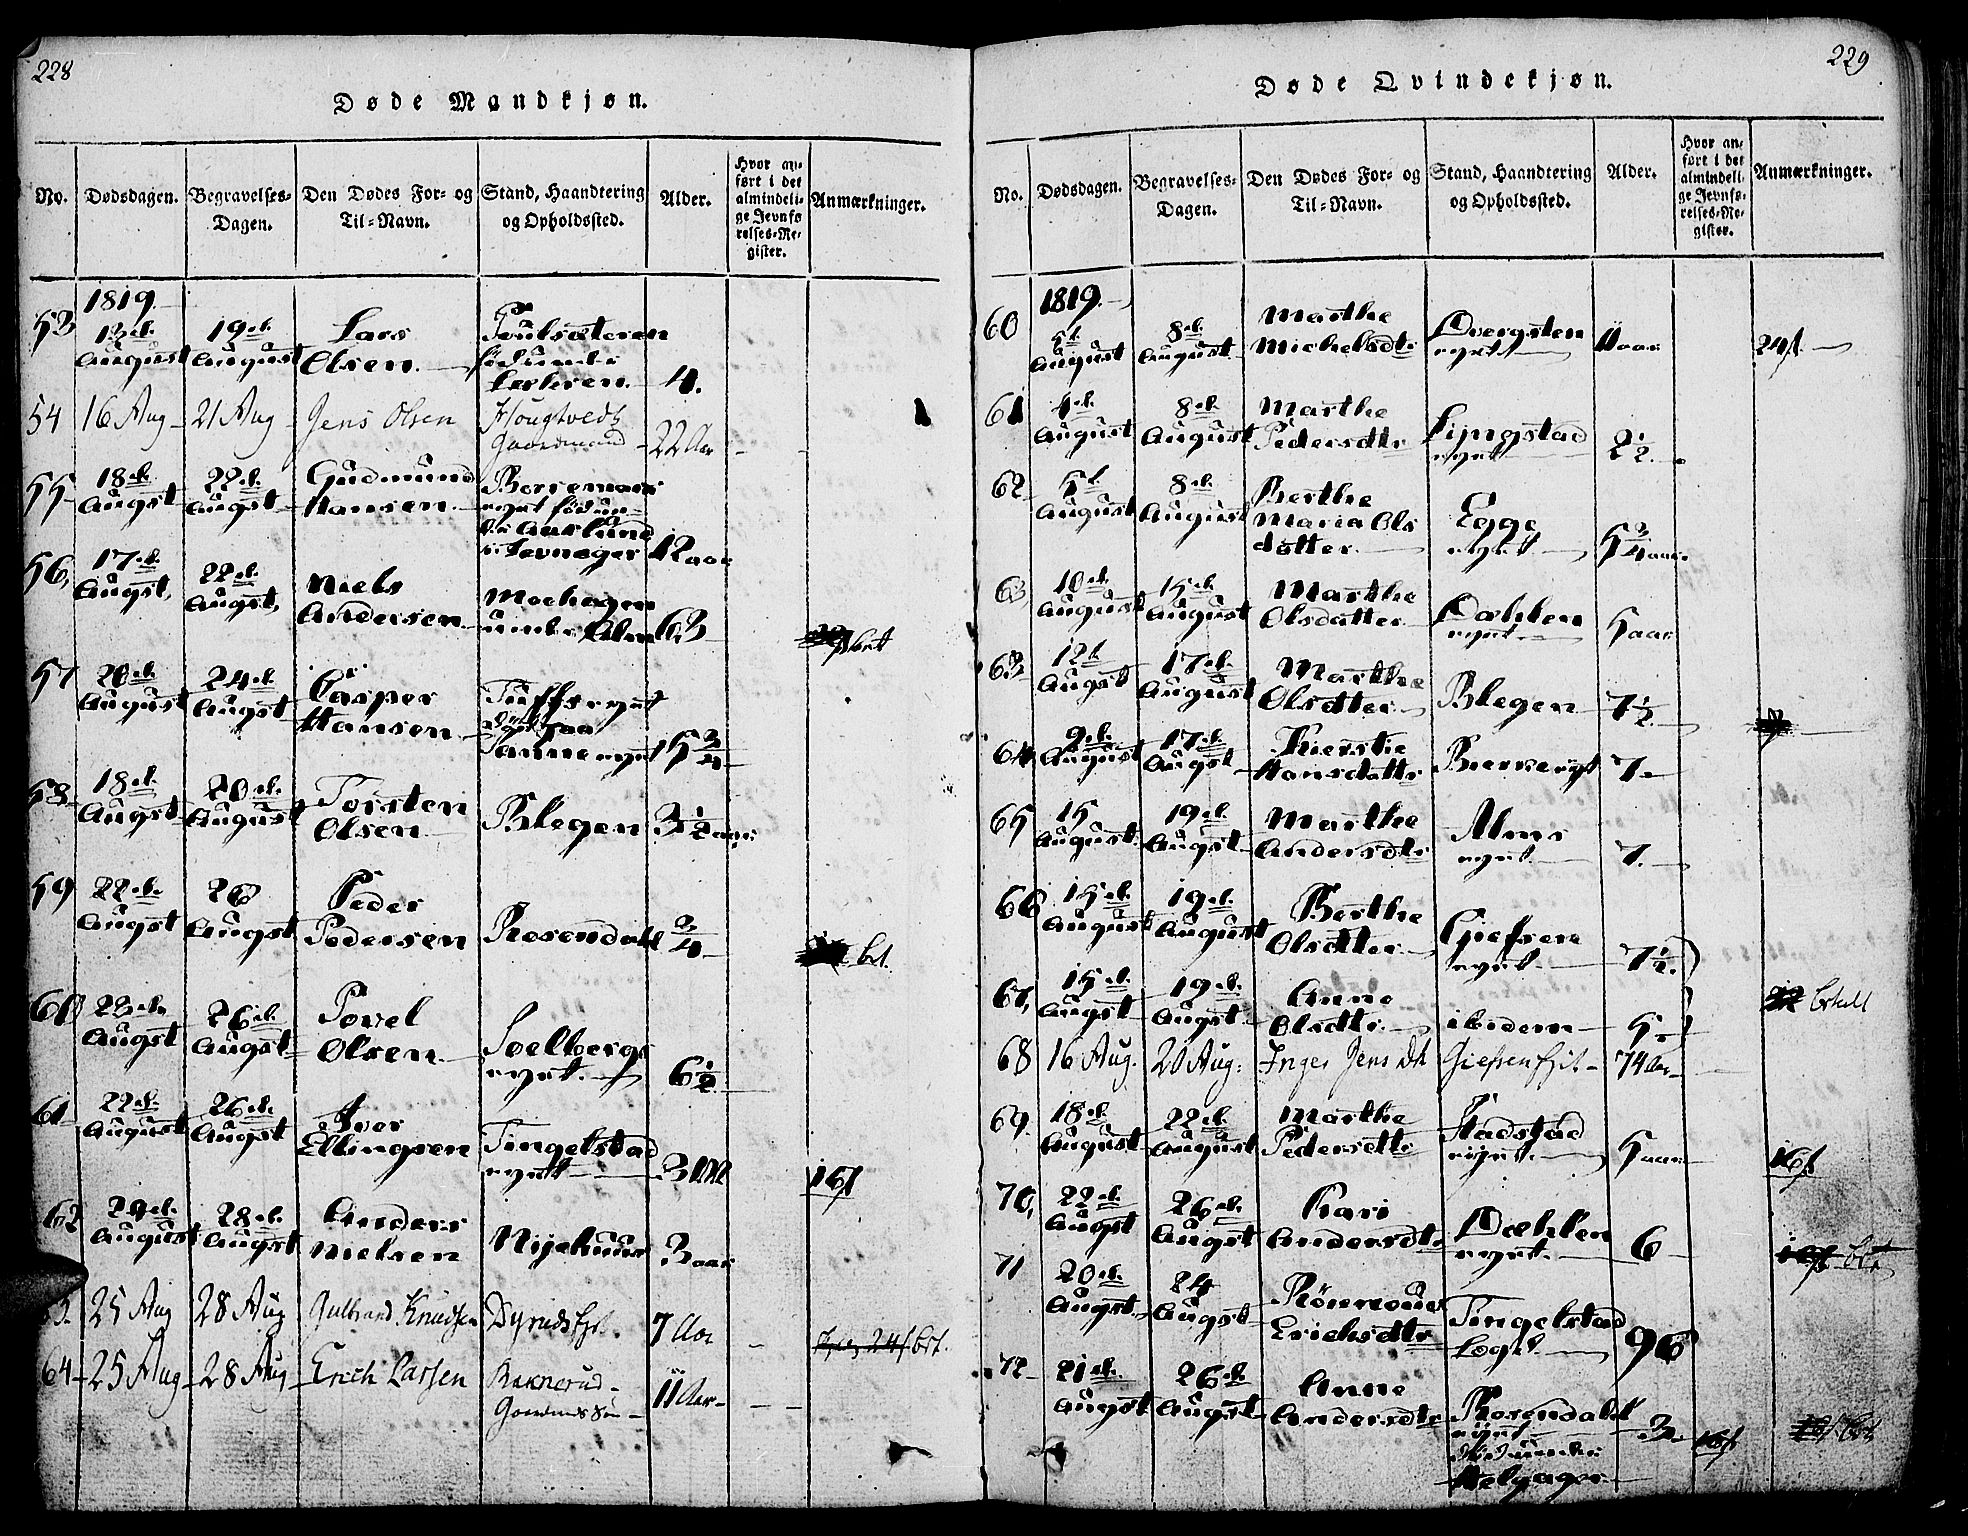 228
Døde Mandkjøn.
No. Dødsdagen. Begravelses-Dagen. Den Dødes For- og Til-Navn. Stand, Haandtering og Opholdssted. Alder. Hvor anført i det almindelige Jevnførelses-Register. Anmærkninger.
1819
53 13de August 19de August Lars Olsen 4.
54 16 Aug 21 Aug Jens Olsen Gaardmand 22 Aar
55 18de Augst 22de Augst Gudmund Hansen Jevnager 12 aar
56, 17de Augst, 22de Augst, Niels Andersen Moehagen under Alm 63
57 20de August 24de Augst Casper Hansen 15 3/4
58 18de Augst 20de August Torsten Olsen Blegen 3 1/2 aar
59 22de Augst 26 Augst Peder Pedersen Rosendahl 3/4 bet.
60 23de Augst 26de Augst Povel Olsen Soelberg eyet. 6 1/2
61 22de August 26de Augst Iver Ellingsen Tingelstad eyet 3 16ſ
62 24de August 28de Augst Anders Nielsen Nijehuus 3 aar
63. 25 Aug 28 Aug Gulbrand Knudsen 7 Aar 24ſ bet.
64 25 Aug 28 Aug Erich Larsen 11 Aar
229
Døde Qvindekjøn.
No. Dødsdagen. Begravelses-Dagen. Den Dødes For- og Til-Navn. Stand, Haandtering og Opholdssted. Alder. Hvor anført i det almindelige Jevnførelses-Register. Anmærkninger.
1819.
60 5t August 8de August Marthe Michelsdtr Dvergsten eyet 11 aar 24ſ
61 August 8de August Marthe Pedersdtr Lyngstad eyet 2 1/2
62 5t August 8de August Berthe Maria Olsdatter Egge eyet 5 3/4 aar
63, 10de August 15de August Marthe Olsdatter Dæhlen eyet 5 aar
63 12t Augst 17de August Marthe Olsdtter Blegen 7 1/2
64 9de August 17de Augst Kierstie Hansdattr 7
65 15 August 19de August Marthe Andersdtr Alms eyet 7.
66 15de August 19de August Berthe Olsdtter Giefsen eyet 7 1/2.
67, 15de Augst 19de Augst Anne Olsdtr ibidem 5
68 16 Aug. 20 Aug: Inger Jens Dtr 74 Aar
69. 18de August 22de August Marthe Pedersdtr Hadstad eyet. 5 aar 16ſ
70, 22de Augst 26de Augst Kari Andersdtr Dæhlen eyet. 6
71 20de August 24 Augst Rönnoug Erichsdtr Tingelstad Logt. 96
72 21de Augst 26de Augst Anne Andersdtr Rosendahl eyet under Helgager 3. 16ſ bet